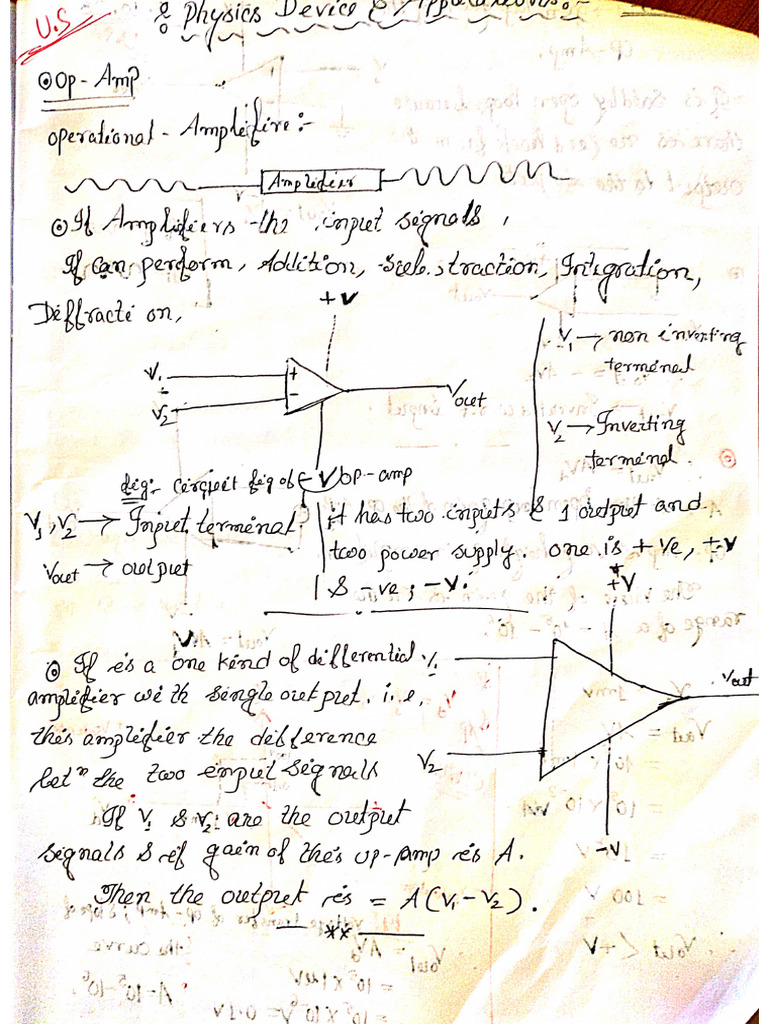 U.S
Physics Device &
Op-Amp
Operational-Amplifire:-
Amplifier
If Amplifiers the input signals,
If can perform, Addition, Sub.straction, Intigration,
Diffracti on,
+V
V1
V2
+
-
Vout
V1 → non inverting
terminal
V2 → Inverting
terminal.
fig:- circuit fig of op-amp
-V
V1, V2 → Input terminal.
Vout → output
it has two inputs & 1 output and
two power supply. one is +ve, +V
& -ve, -V.
If is a one kind of differential
amplifier with single output. i.e,
this amplifier the difference
betn the two input signals
If V1 & V2 are the output
signals & if gain of this op-amp is A.
Then the output is = A(V1-V2).
**
+V
V1
V2
Vout
-V